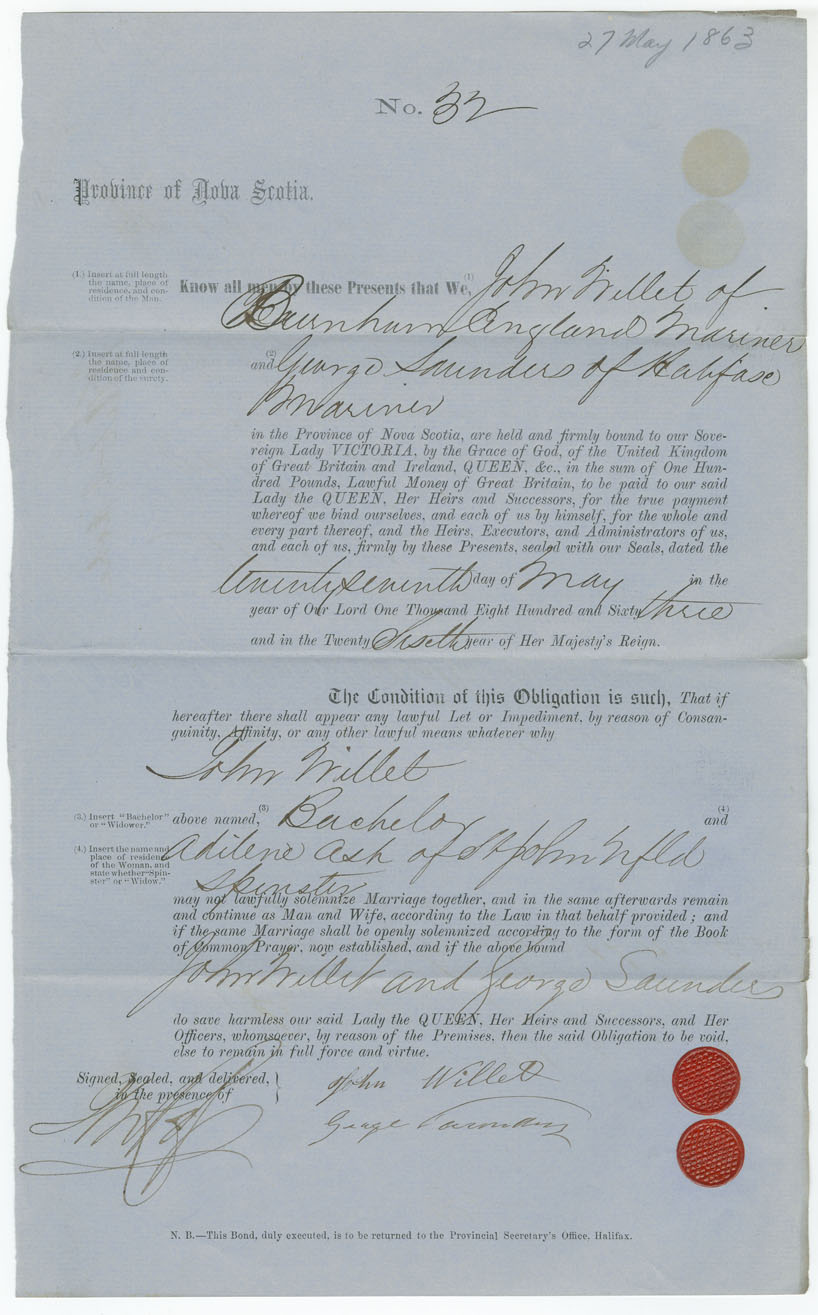 27 May 1863
No. 32
Province of Nova Scotia.
(1.) Insert at full length
the name, place of
residence, and con-
dition of the Man.
Know all men by these Presents that We, (1) John Willet of
Burnham England Mariner
(2.) Insert at full length
the name, place of
residence and con-
dition of the surety.
and (2) George Saunders of Halifax
Mariner
in the Province of Nova Scotia, are held and firmly bound to our Sove-
reign Lady VICTORIA, by the Grace of God, of the United Kingdom
of Great Britain and Ireland, QUEEN, &c., in the sum of One Hun-
dred Pounds, Lawful Money of Great Britain, to be paid to our said
Lady the QUEEN, Her Heirs and Successors, for the true payment
whereof we bind ourselves, and each of us by himself, for the whole and
every part thereof, and the Heirs, Executors, and Administrators of us,
and each of us, firmly by these Presents, sealed with our Seals, dated the
twenty seventh day of May in the
year of Our Lord One Thousand Eight Hundred and Sixty three
and in the Twenty Sixth year of Her Majesty's Reign.
The Condition of this Obligation is such, That if
hereafter there shall appear any lawful Let or Impediment, by reason of Consan-
guinity, Affinity, or any other lawful means whatever why
John Willet
(3.) Insert "Bachelor"
or "Widower."
above named, (3) Bachelor and (4)
(4.) Insert the name and
place of residence
of the Woman, and
state whether "Spin-
ster" or "Widow."
Adilene Ash of St John Nfld
Spinster
may not lawfully solemnize Marriage together, and in the same afterwards remain
and continue as Man and Wife, according to the Law in that behalf provided; and
if the same Marriage shall be openly solemnized according to the form of the Book
of Common Prayer, now established, and if the above bound
John Willet and George Saunders
do save harmless our said Lady the QUEEN, Her Heirs and Successors, and Her
Officers, whomsoever, by reason of the Premises, then the said Obligation to be void,
else to remain in full force and virtue.
Signed, Sealed, and delivered,
in the presence of
John Willet
George Saunders
N. B.—This Bond, duly executed, is to be returned to the Provincial Secretary's Office, Halifax.